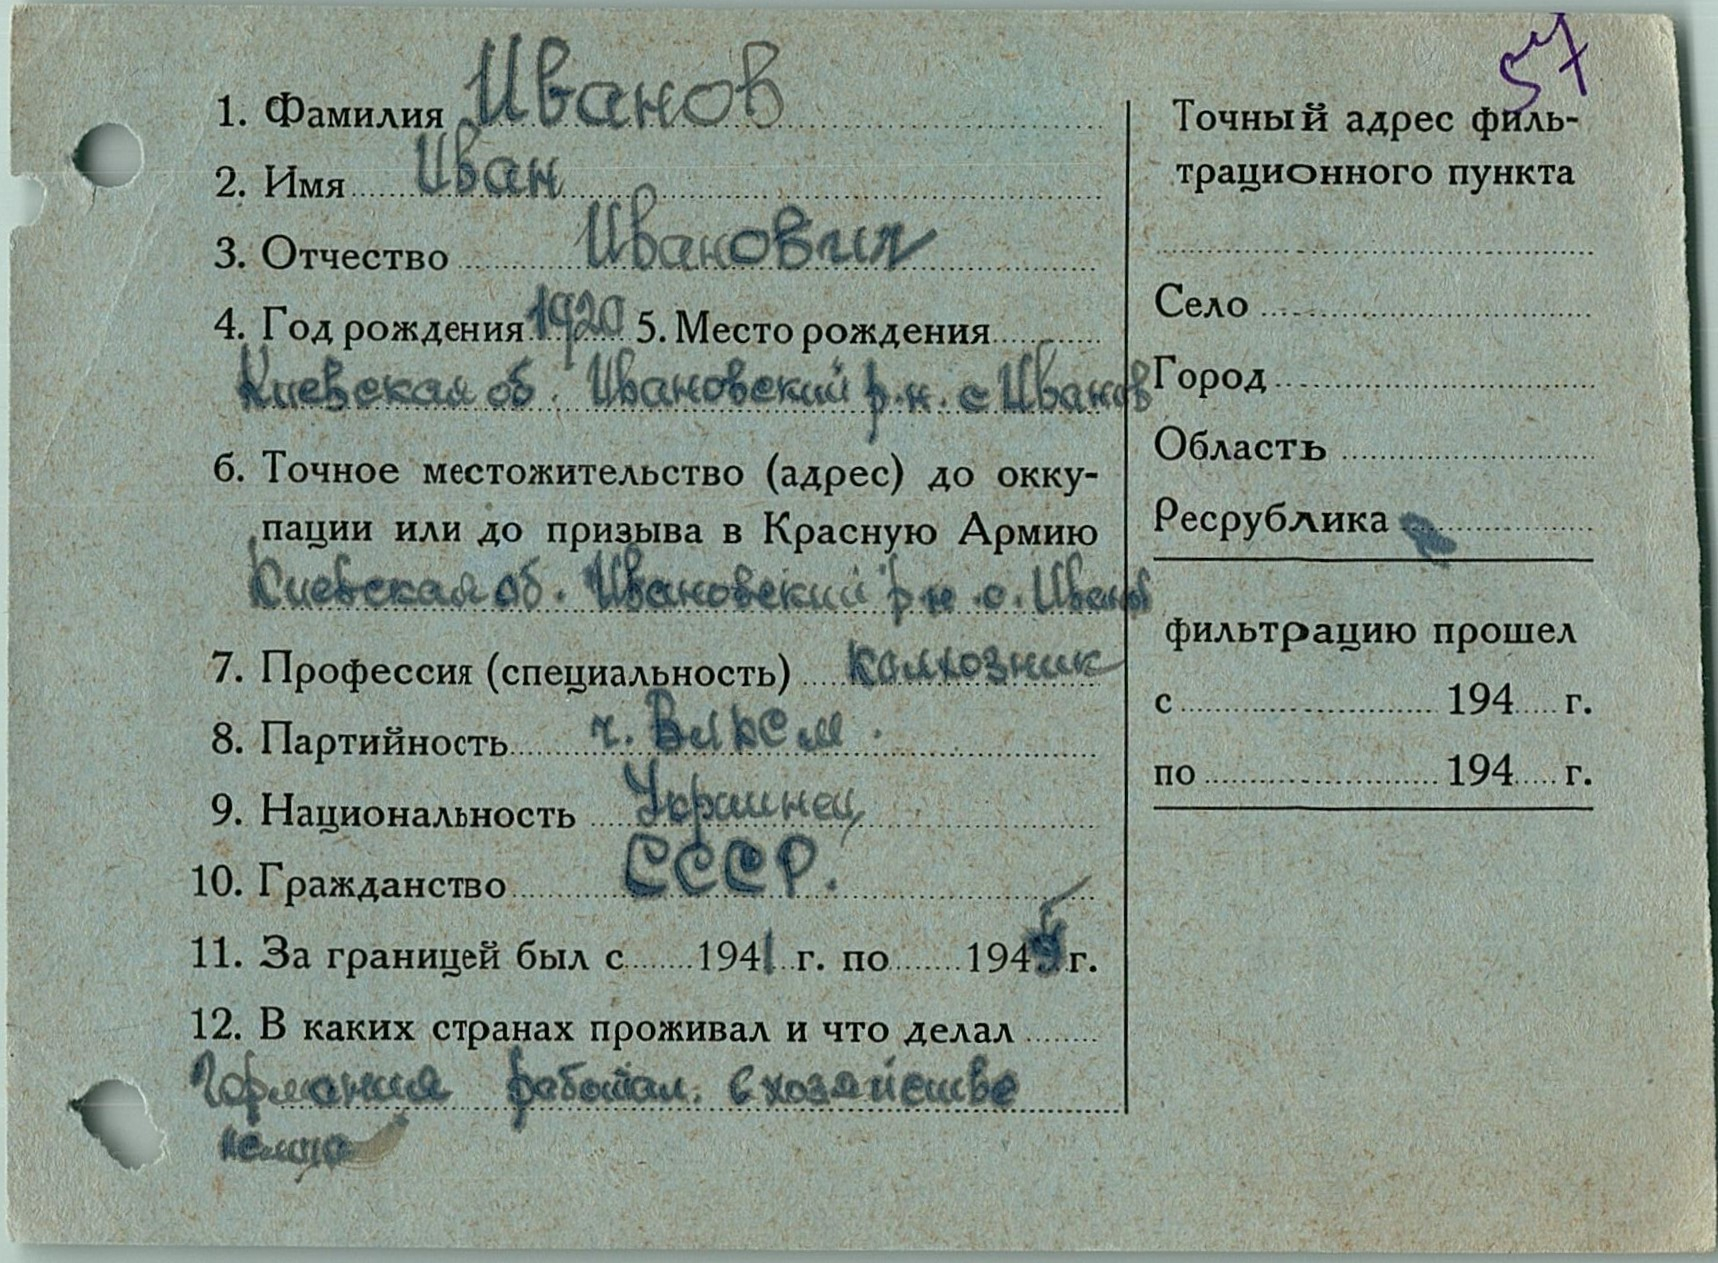 57
1. Фамилия Иванов
2. Имя Иван
3. Отчество Иванович
4. Год рождения 1920 5. Место рождения
Киевская об. Ивановский р.н. с Иванов
6. Точное местожительство (адрес) до окку-
пации или до призыва в Красную Армию
Киевская об. Ивановский р н. с. Иванов
7. Профессия (специальность) колхозник
8. Партийность ч. ВЛКСМ.
9. Национальность Украинец
10. Гражданство СССР.
11. За границей был с 1941 г. по 1945 г.
12. В каких странах проживал и что делал
Германия работал. в хозяйстве
немца
Точный адрес филь-
трационного пункта
Село
Город
Область
Ресрублика
фильтрацию прошел
с 194 г.
по 194 г.